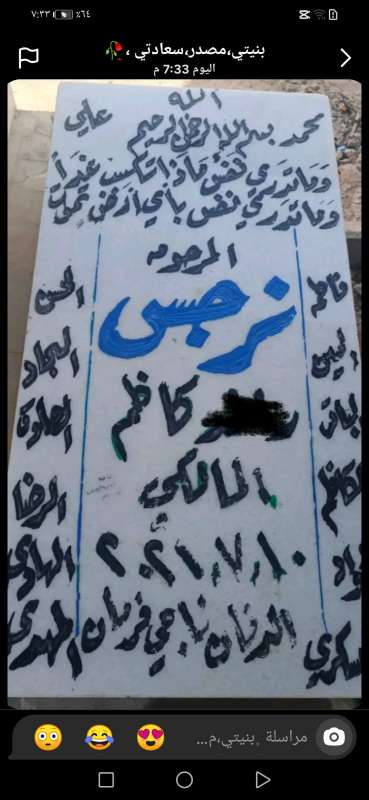 ٧:٣٣ ٪٦٤
بنيتي،مصدر،سعادتي ،
اليوم 7:33 م
الله
محمد بسم الله الرحمن الرحيم علي
وما تدري نفس ماذا تكسب غداً
وما تدري نفس بأي أرض تموت
المرحومه
فاطمه نرجس الحسن
الحسين السجاد
الباقر كاظم الصادق
الكاظم المالكي الرضا
واد ٢٠٢١/٧/١٠ الهادي
سكري الدفان ناجي فرمان المهدي
مراسلة بنيتي،م...